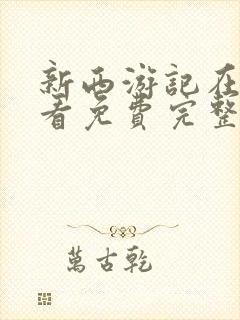 新西游記在
看免費完整
萬古乾